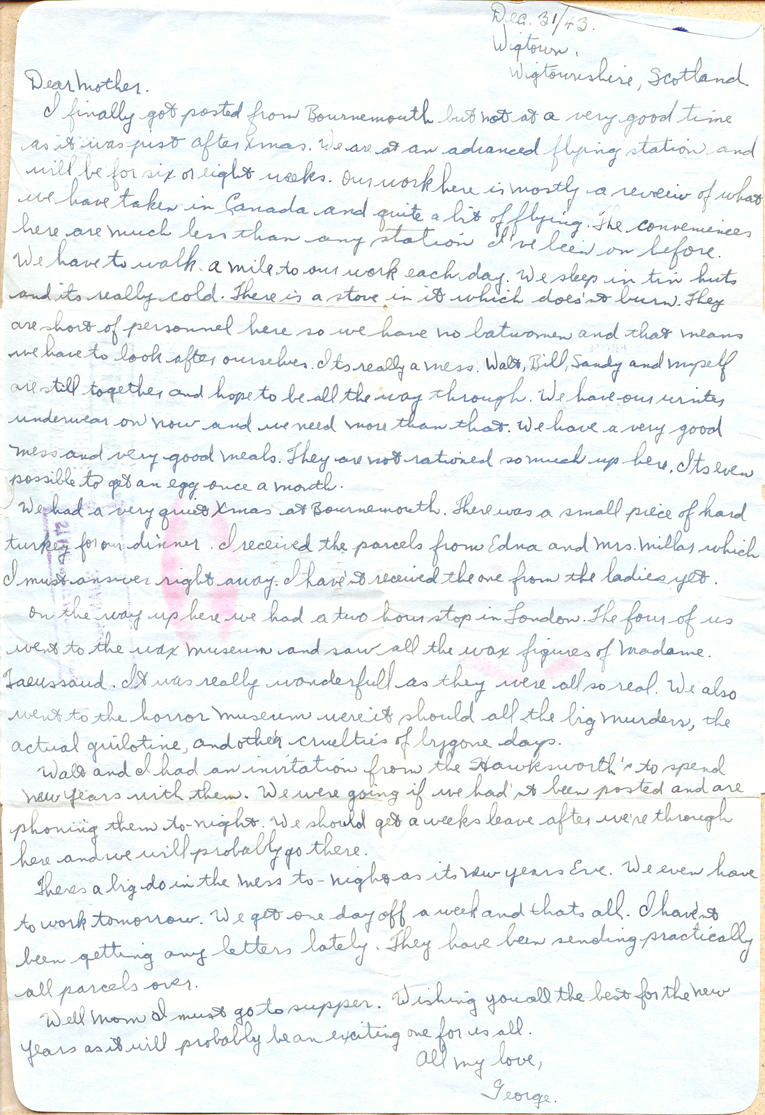 Dec. 31/43.
Wigtown,
Wigtownshire, Scotland
Dear Mother.
I finally got posted from Bournemouth but not at a very good time
as it was just after Xmas. We are at an advanced flying station and
will be for six or eight weeks. Our work here is mostly a reveiw of what
we have taken in Canada and quite a bit of flying. The conveniences
here are much less than any station I've been on before.
We have to walk a mile to our work each day. We sleep in tin huts
and its really cold. There is a stove in it which does'nt burn. They
are short of personnel here so we have no batwomen and that means
we have to look after ourselves. Its really a mess. Walt, Bill, Sandy and myself
are still together and hope to be all the way through. We have our winter
underwear on now and we need more than that. We have a very good
mess and very good meals. They are not rationed so much up here. Its even
possible to get an egg once a month.
We had a very quiet Xmas at Bournemouth. There was a small piece of hard
turkey for our dinner. I received the parcels from Edna and Mrs. Millar which
I must answer right away. I have'nt received the one from the ladies yet.
On the way up here we had a two hour stop in London. The four of us
went to the wax museum and saw all the wax figures of Madame.
Taeussaud. It was really wonderfull as they were all so real. We also
went to the horror museum were it should all the big murders, the
actual guilotine, and other cruelties of bygone days.
Walt and I had an invitation from the Hawksworth's to spend
New Years with them. We were going if we had'nt been posted and are
phoning them to-night. We should get a weeks leave after we're through
here and we will probably go there.
There's a big do in the mess to-night as its New Years Eve. We even have
to work tomorrow. We get one day off a week and thats all. I have'nt
been getting any letters lately. They have been sending practically
all parcels over.
Well Mom I must go to supper. Wishing you all the best for the new
years as it will probably be an exciting one for us all.
All my love,
George.